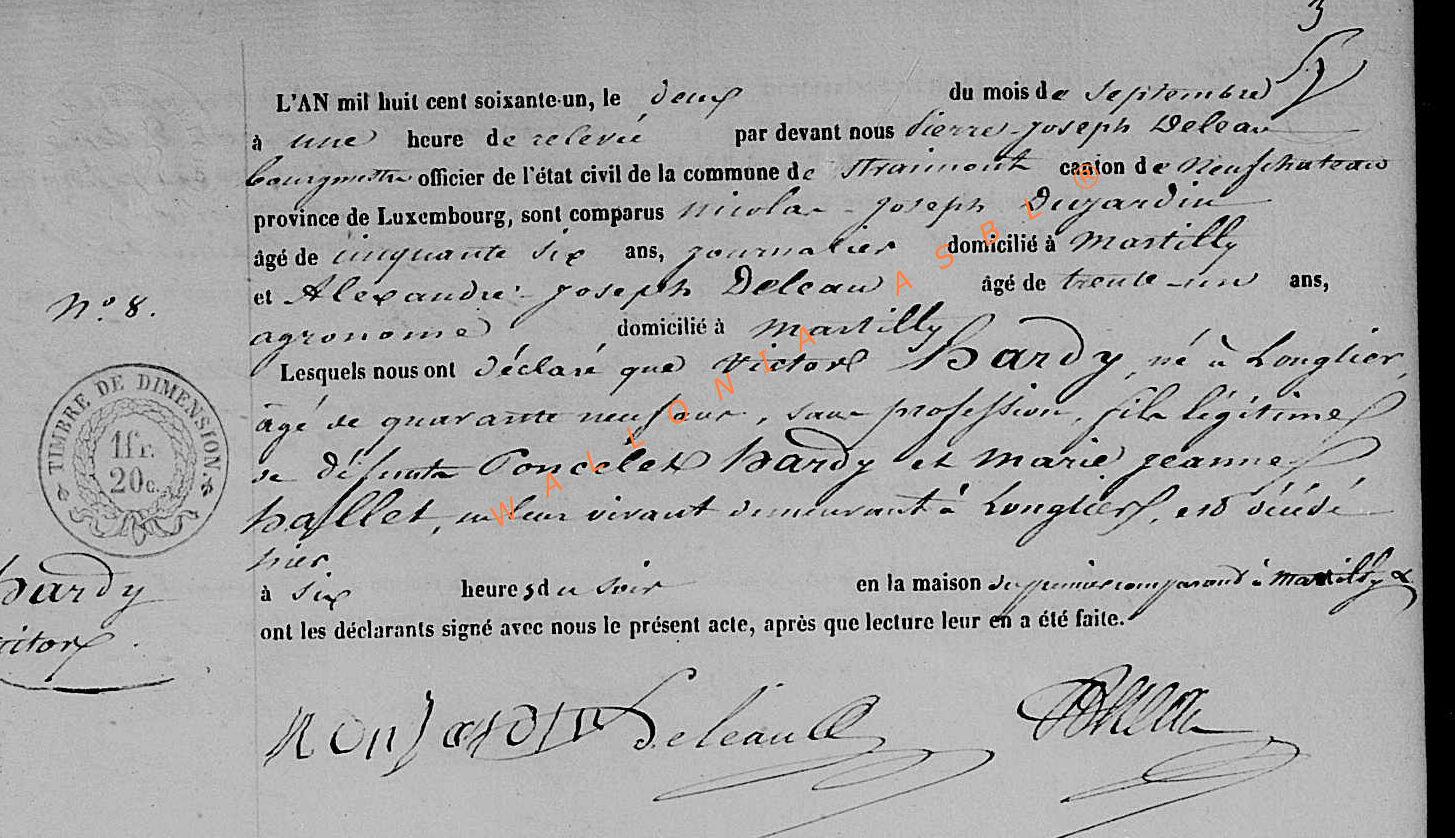 3
L'AN mil huit cent soixante-un, le deux du mois de Septembre
à une heure de relevée par devant nous Pierre-Joseph Deleau
bourgmestre officier de l'état civil de la commune de Straimont canton de Neufchateau
province de Luxembourg, sont comparus Nicolas-Joseph Dujardin
âgé de cinquante six ans, journalier domicilié à Martilly
et Alexandre-Joseph Deleau âgé de trente-un ans,
N.º 8.
agronome domicilié à Martilly
Lesquels nous ont déclaré que Victor Hardy, né à Longlier,
âgé de quarante neuf ans, sans profession, fils légitime
TIMBRE DE DIMENSION
1fr.
20c.
de défunts Poncelet Hardy et Marie Jeanne
Hallet, en leur vivant demeurant à Longlier, est décédé
hier
à six heures du soir en la maison du premier comparant à Martilly &
Hardy
Victor
ont les déclarants signé avec nous le présent acte, après que lecture leur en a été faite.
Deleau
WALLONIA ASBL ®